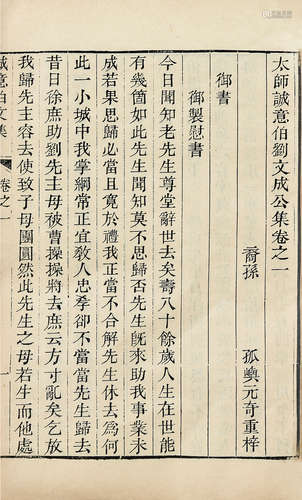 太師誠意伯劉文成公集卷之一
裔孫 孤嶼元奇重梓
御書
御製慰書
今日聞知老先生尊堂辭世去矣壽八十餘歲人生在世能
有幾箇如此先生聞知莫不思歸否先生旣來助我事業未
成若果思歸必當且寬於禮我正當不合解先生休去爲何
此一小城中我掌綱常正宜教人忠孝卻不當當先生歸去
昔日徐庶助劉先主母被曹操操將去庶云方寸亂矣乞放
我歸先主容去使致子母團圓然此先生之母若生而他處
誠意伯文集 卷之一